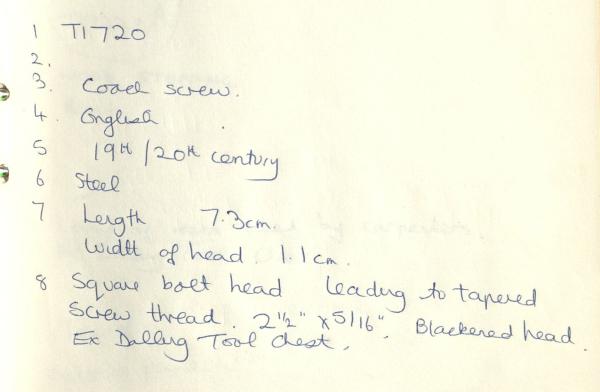 1 T1720
2.
3. Coach screw.
4. English
5 19th/20th century
6 Steel
7 Length 7.3cm.
Width of head 1.1cm.
8 Square bolt head leading to tapered
screw thread. 2 1/2" x 5/16". Blackened head.
Ex Dalling Tool Chest.